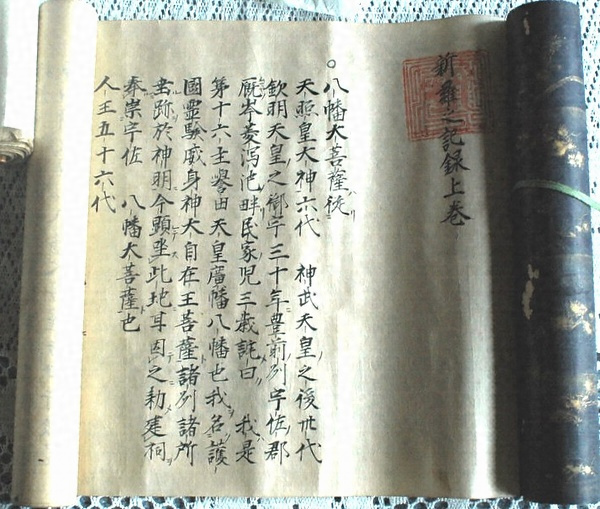 新羅之記録上巻
○八幡大菩薩従
天照皇大神六代 神武天皇之後丗代
欽明天皇之御宇三十年豊前列宇佐郡
厩岑菱瀉池畔民家児三歳託曰 我是
第十六主誉田天皇廣幡八幡也我名護
國霊験威身神大自在王菩薩諸列諸所
垂跡於神明今顕垂此地耳因之勅建祠
奉崇宇佐 八幡大菩薩也
人王五十六代